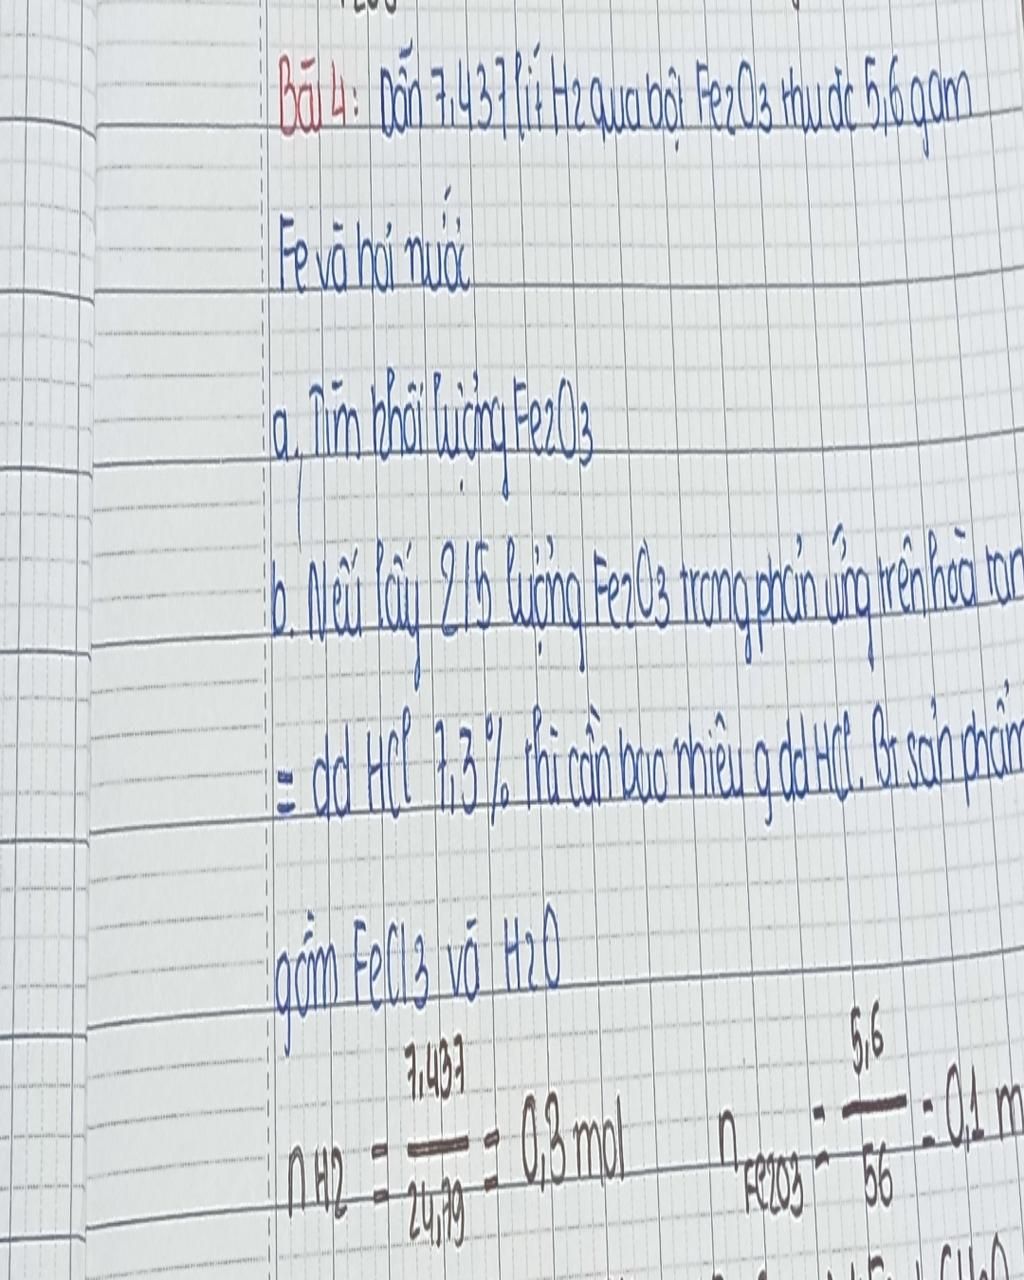 Bài 4: Dẫn 7,437 lít H2 qua bột Fe2O3 thu đc 5,6 gam
Fe và hơi nước
a, Tìm khối lượng Fe2O3
b. Nếu lấy 2/5 lượng Fe2O3 trong phản ứng trên hoà tan
= dd HCl 7,3% thì cần bao nhiêu g dd HCl. Bt sản phẩm
gồm FeCl3 và H2O
nH2 = 7,437 / 24,79 = 0,3 mol n Fe2O3 = 5,6 / 56 = 0,1 m